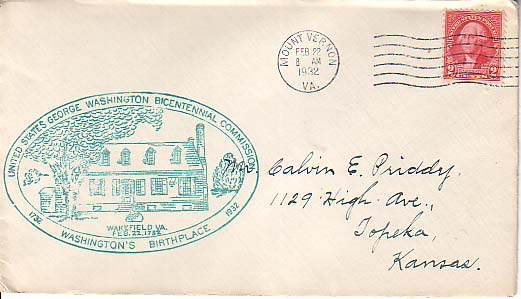 MOUNT VERNON
FEB 22
8 AM
1932
VA.
2 2
UNITED STATES GEORGE WASHINGTON BICENTENNIAL COMMISSION
1732 1932
WAKEFIELD VA.
FEB. 22, 1732
WASHINGTON'S BIRTHPLACE
Mr. Calvin E. Priddy.
1129 High Ave.,
Topeka,
Kansas.